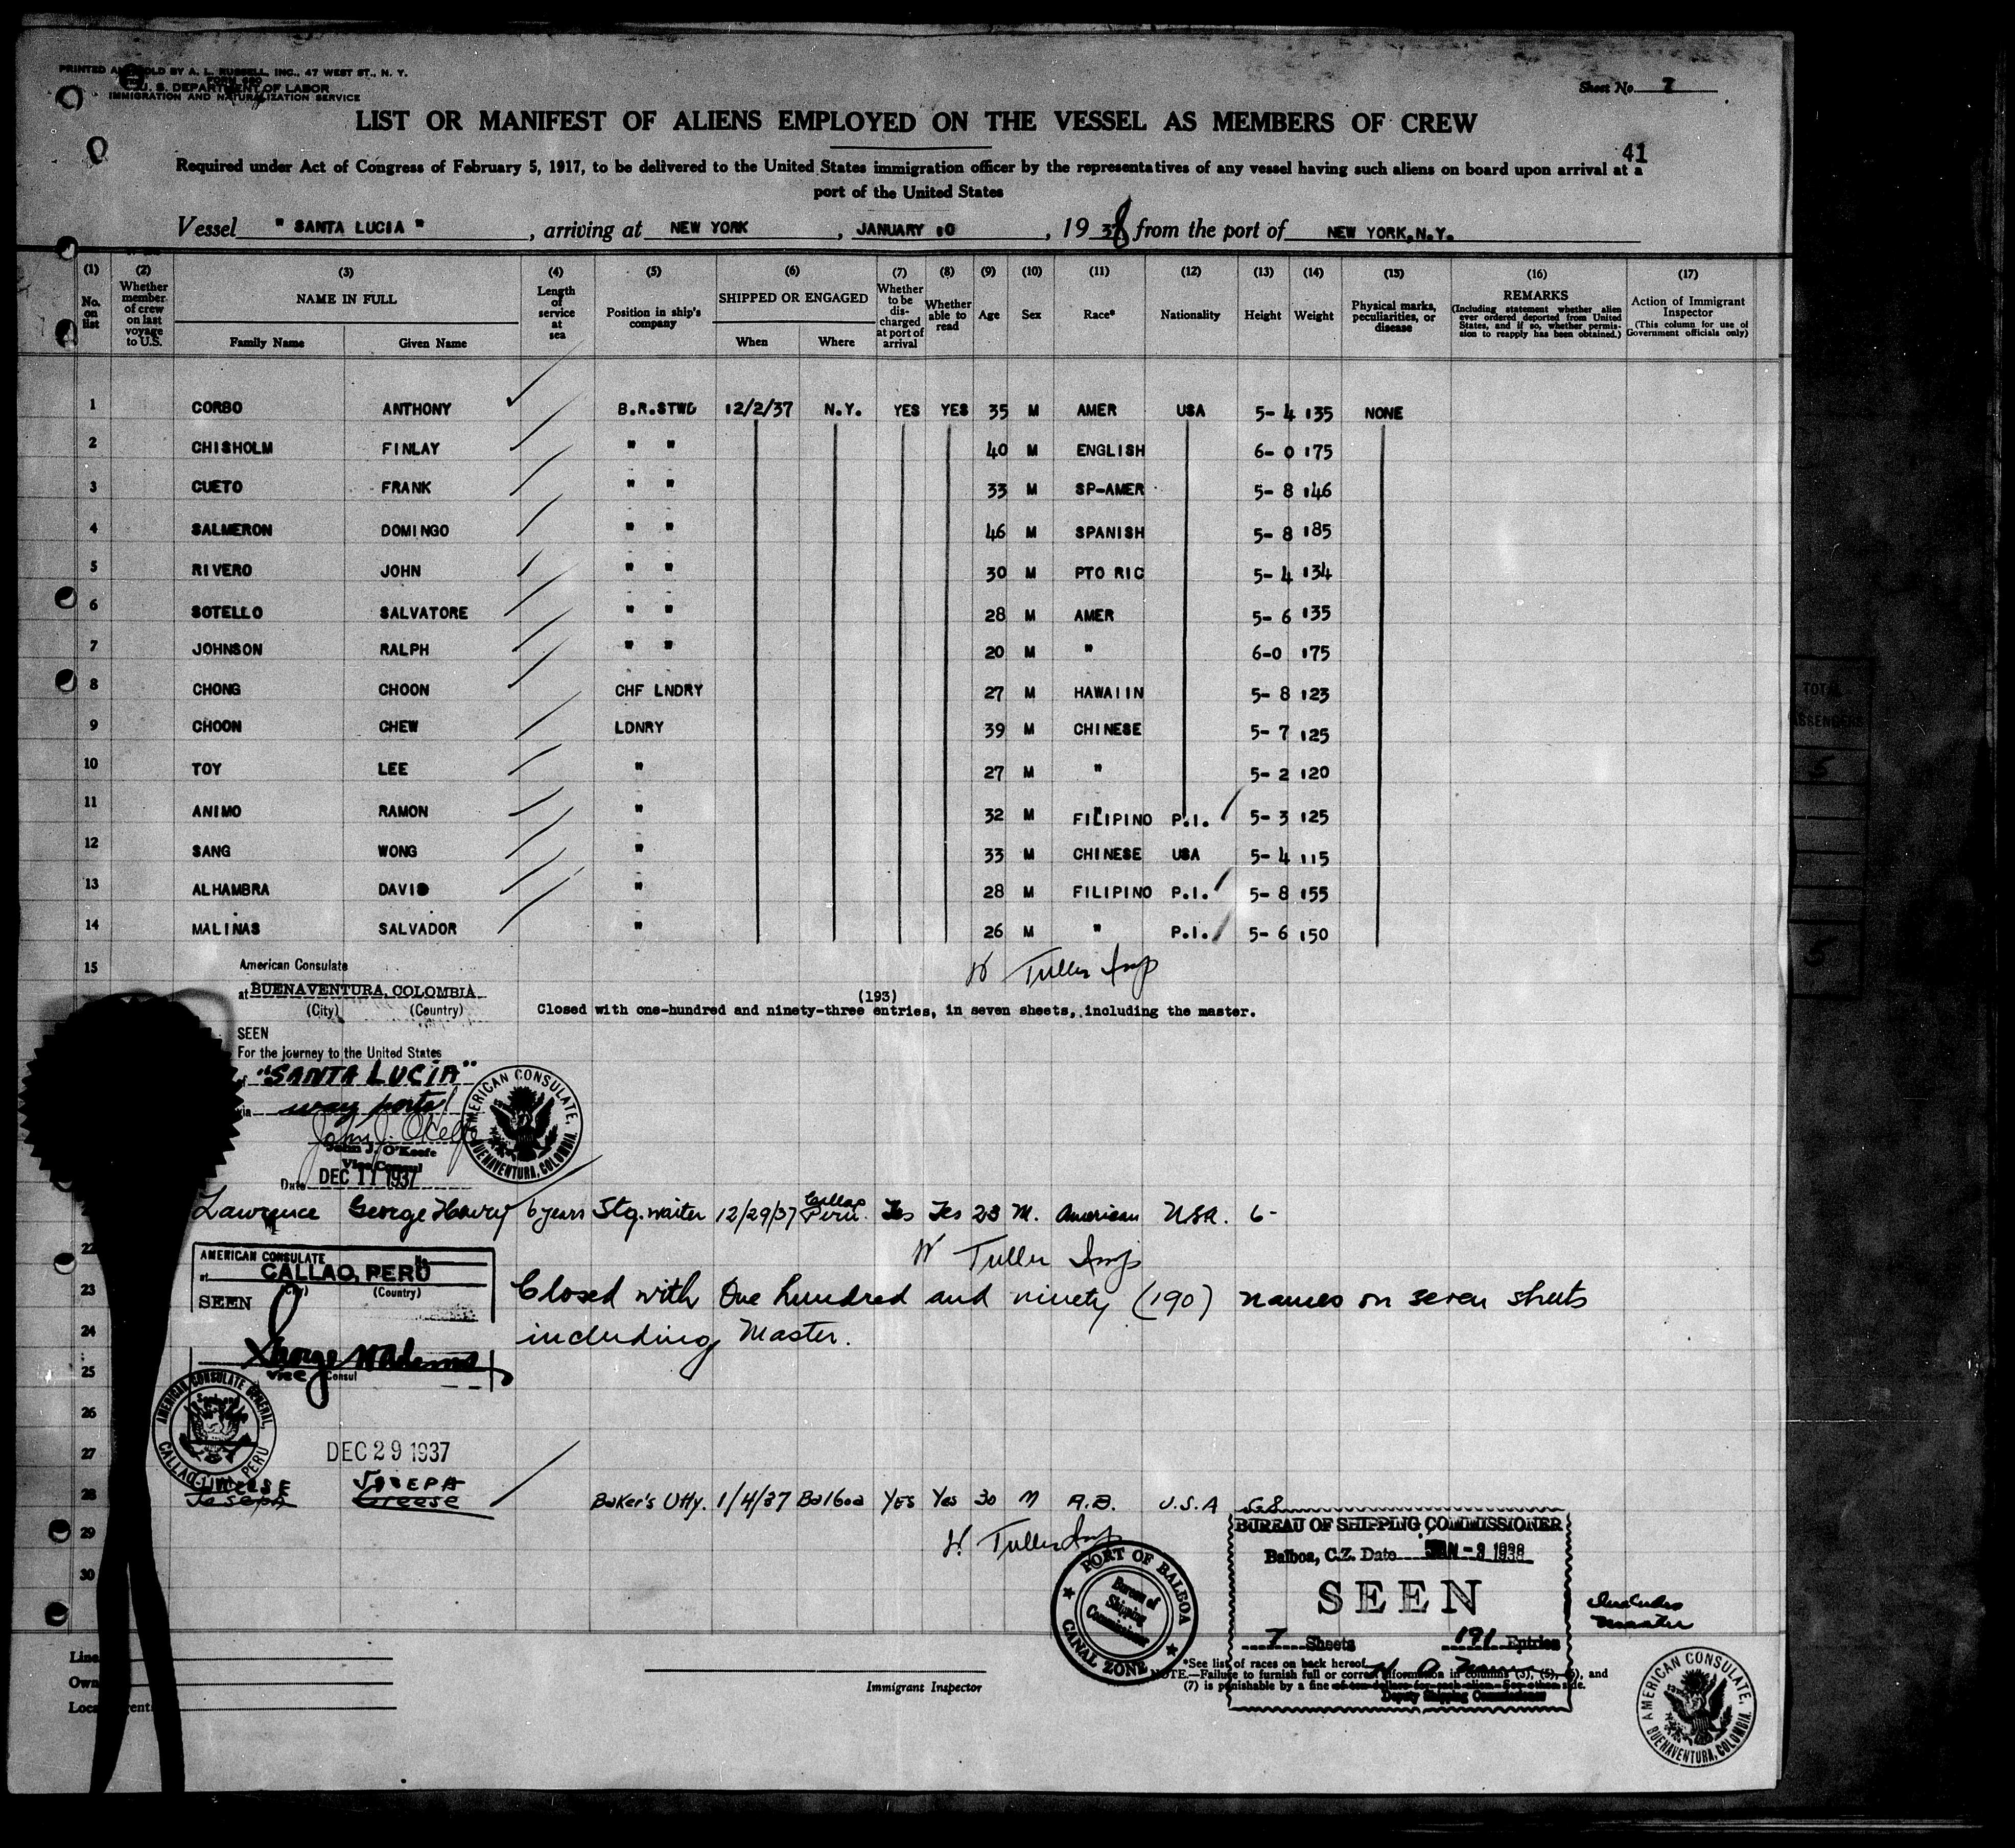 PRINTED AND SOLD BY A. L. RUSSELL, INC., 47 WEST ST., N. Y.
FORM 680
U. S. DEPARTMENT OF LABOR
IMMIGRATION AND NATURALIZATION SERVICE
Sheet No. 7
LIST OR MANIFEST OF ALIENS EMPLOYED ON THE VESSEL AS MEMBERS OF CREW
41
Required under Act of Congress of February 5, 1917, to be delivered to the United States immigration officer by the representatives of any vessel having such aliens on board upon arrival at a
port of the United States
Vessel " SANTA LUCIA " , arriving at NEW YORK , JANUARY 10 , 1938 from the port of NEW YORK, N.Y.
(1) No. on list
(2) Whether member of crew on last voyage to U.S.
(3) NAME IN FULL Family Name Given Name
(4) Length of service at sea
(5) Position in ship's company
(6) SHIPPED OR ENGAGED When Where
(7) Whether to be discharged at port of arrival
(8) Whether able to read
(9) Age
(10) Sex
(11) Race*
(12) Nationality
(13) Height
(14) Weight
(15) Physical marks, peculiarities, or disease
(16) REMARKS (Including statement whether alien ever ordered deported from United States, and if so, whether permission to reapply has been obtained.)
(17) Action of Immigrant Inspector (This column for use of Government officials only)
1 CORBO ANTHONY B.R.STWD 12/2/37 N.Y. YES YES 35 M AMER USA 5- 4 135 NONE
2 CHISHOLM FINLAY " " 40 M ENGLISH 6- 0 175
3 CUETO FRANK " " 33 M SP-AMER 5- 8 146
4 SALMERON DOMINGO " " 46 M SPANISH 5- 8 185
5 RIVERO JOHN " " 30 M PTO RIC 5- 4 134
6 SOTELLO SALVATORE " " 28 M AMER 5- 6 135
7 JOHNSON RALPH " " 20 M " 6-0 175
8 CHONG CHOON CHF LNDRY 27 M HAWAIIN 5- 8 123
9 CHOON CHEW LDNRY 39 M CHINESE 5- 7 125
10 TOY LEE " 27 M " 5- 2 120
11 ANIMO RAMON " 32 M FILIPINO P.I. 5- 3 125
12 SANG WONG " 33 M CHINESE USA 5- 4 115
13 ALHAMBRA DAVID " 28 M FILIPINO P.I. 5- 8 155
14 MALINAS SALVADOR " 26 M " P.I. 5- 6 150
15
W Tuller Insp
American Consulate
at BUENAVENTURA, COLOMBIA
(City) (Country)
(193)
Closed with one-hundred and ninety-three entries, in seven sheets, including the master.
SEEN
For the journey to the United States
of "SANTA LUCIA"
via way ports
John J. O'Keefe
John J. O'Keefe
Vice Consul
Date DEC 11 1937
AMERICAN CONSULATE, BUENAVENTURA, COLOMBIA.
Lawrence George Henry 6 years Stg. Waiter 12/29/37 Callao Peru. Yes Yes 23 M. American USA. 6-
22
W Tuller Insp
AMERICAN CONSULATE
at CALLAO, PERU
(City) (Country)
SEEN
23 Closed with One hundred and ninety (190) names on seven sheets
24 including Master.
Vice Consul
25
AMERICAN CONSULATE GENERAL, CALLAO-LIMA, PERU
26
27
DEC 29 1937
JOSEPH
28 Joseph Greese Baker's Utty. 1/4/37 Balboa YES Yes 30 M A.B. U.S.A 5-8
29
W. Tuller Insp
30
PORT OF BALBOA CANAL ZONE
Bureau of Shipping Commissioner
BUREAU OF SHIPPING COMMISSIONER
Balboa, C.Z. Date JAN -3 1938
SEEN
7 Sheets 191 Entries
Deputy Shipping Commissioner
Includes
Master
Line
Own
Local Agent
Immigrant Inspector
*See list of races on back hereof.
NOTE.—Failure to furnish full or correct information in columns (3), (5), (6), and
(7) is punishable by a fine of ten dollars for each alien. See other side.
AMERICAN CONSULATE, BUENAVENTURA, COLOMBIA.
TOTAL
PASSENGERS
5
5